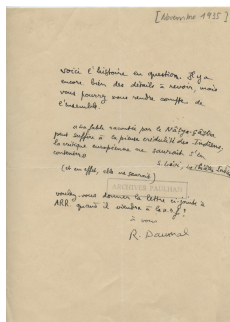 [Novembre 1935]
voici l'histoire en question. Il y a
encore bien des détails à revoir, mais
vous pourrez vous rendre compte de
l'ensemble.
"La fable racontée par le Nâtya-çâstra
peut suffire à la pieuse crédulité des Indiens,
la critique européenne ne saurait s'en
contenter"
S. Lévi, Le Théâtre Indien
(et en effet, elle ne saurait)
ARCHIVES PAULHAN
voulez-vous donner la lettre ci-jointe à
ARR quand il viendra à la n.r.f?
à vous
R. Daumal